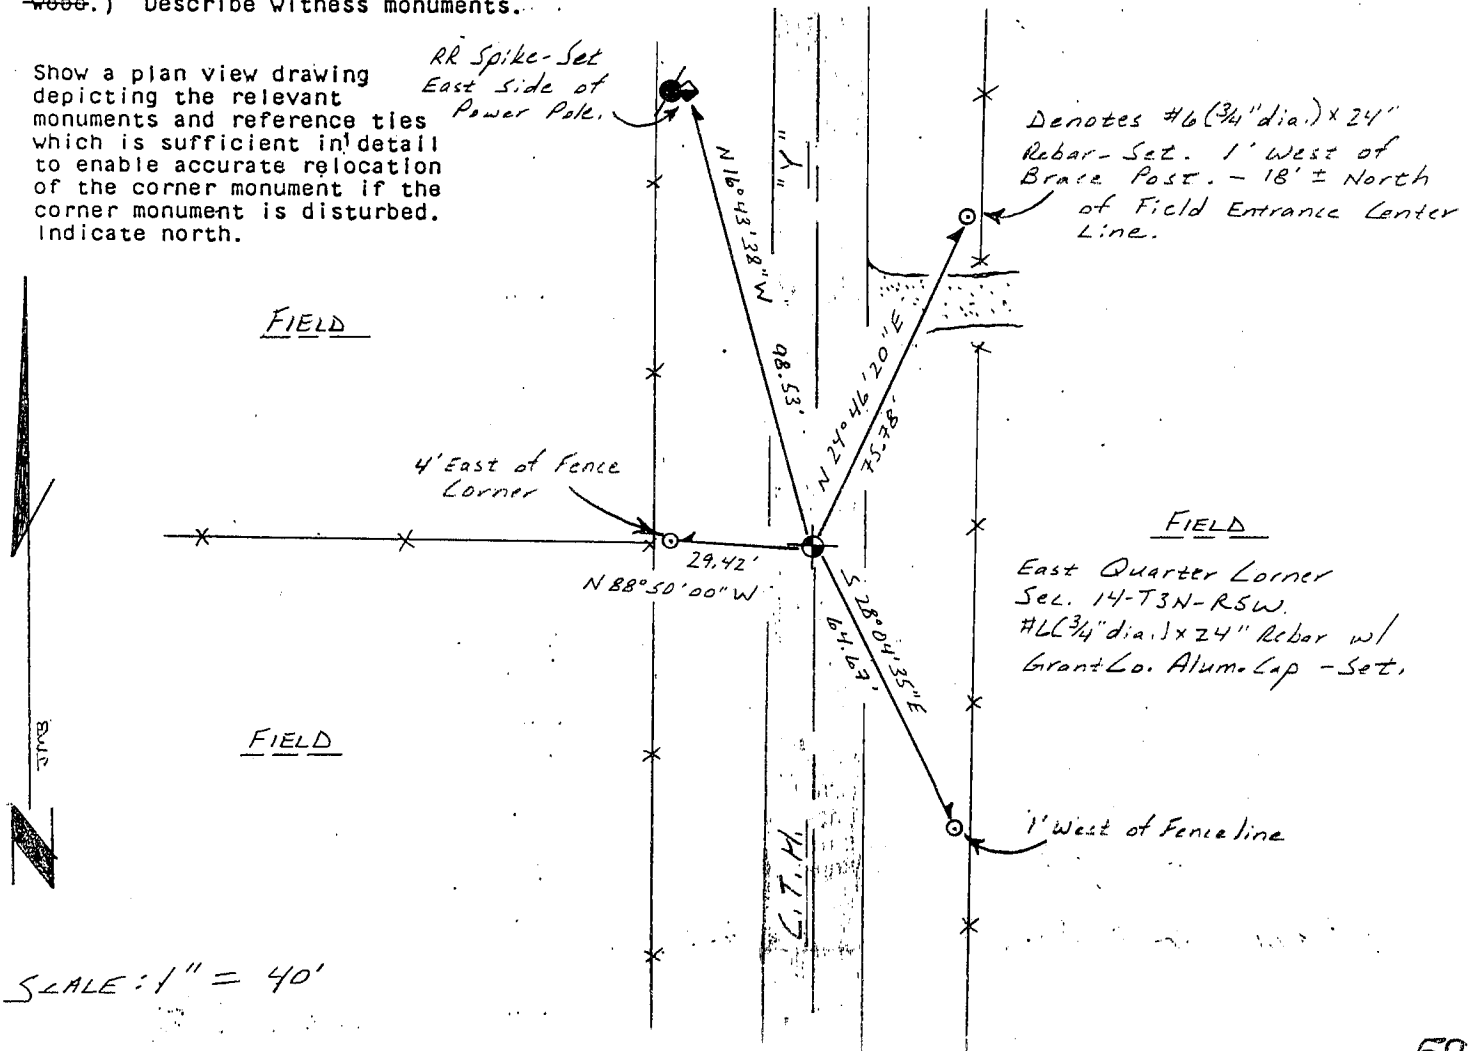 wood.) Describe witness monuments.
Show a plan view drawing
depicting the relevant
monuments and reference ties
which is sufficient in detail
to enable accurate relocation
of the corner monument if the
corner monument is disturbed.
Indicate north.
RR Spike-Set
East Side of
Power Pole.
"Y"
Denotes #6(3/4"dia.)x24"
Rebar-Set. 1' West of
Brace Post. - 18' ± North
of Field Entrance Center
Line.
N16°43'38"W
98.53'
N 24°46'20"E
75.78'
FIELD
4' East of Fence
Corner
29.42'
N88°50'00"W
S 28°04'35"E
64.67'
FIELD
East Quarter Corner
Sec. 14-T3N-R5W.
#6(3/4"dia.)x24" Rebar w/
Grant Co. Alum. Cap - Set.
FIELD
1' West of Fence line
C.T.H.
N
SCALE: 1" = 40'